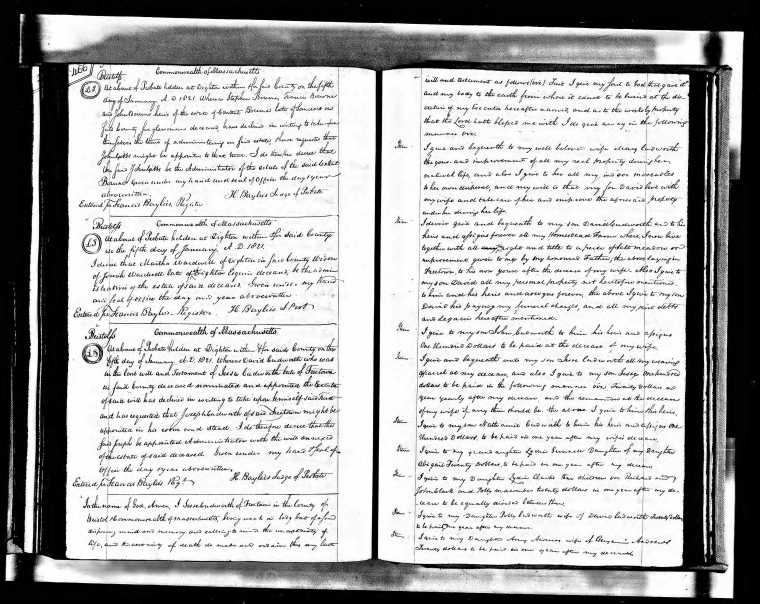 466
Bristol ss Commonwealth of Massachusetts
At a Court of Probate holden at Dighton within & for said County on the fifth
day of January A.D. 1821. Whereas Stephen Borden,
and John heirs of the
said County deceased, have declined in writing to take upon
themselves the trust of administering on said estate, & have requested that
John might be appointed to that trust. I do therefore decree that
the said John be the Administrator of the estate of the said
Given under my hand and seal of Office the day & year
abovewritten. H. Baylies Judge of Probate
Entered for Francis Baylies, Register
Bristol ss Commonwealth of Massachusetts
At a Court of Probate holden at Dighton within & for said County
on the fifth day of January, A.D. 1821.
I decree that Martha Wardwell of Dighton in said County Widow
of Josiah Wardwell late of Dighton deceased, be the admin
istratrix of the estate of said deceased. Given under my hand
and seal of office the day and year abovewritten
Entered for Francis Baylies Register. H. Baylies J. Prob.
Bristol ss Commonwealth of Massachusetts
At a Court of Probate holden at Dighton within & for said County on the
fifth day of January A.D. 1821. Whereas David Cudworth who was
in the last will and Testament of Jesse Cudworth late of Freetown
in said County deceased nominated and appointed the Executor
of said will has declined in writing to take upon himself said trust
and has requested that Joseph Cudworth of said Freetown might be
appointed in his room and stead. I do therefore decree that the
said Joseph be appointed Administrator with the will annexed
of the estate of said deceased. Given under my hand & seal of
Office the day & year abovewritten.
Entered for Francis Baylies Regr. H. Baylies Judge of Probate
In the name of God, Amen, I Jesse Cudworth of Freetown in the County of
Bristol & Commonwealth of Massachusetts, being weak in body but of a sound
disposing mind and memory and calling to mind the uncertainty of
life, and the certainty of death do make and ordain this my last
will and testament as follows (viz) First I give my soul to God that gave it
and my body to the earth from whence it came to be buried at the dis
cretion of my Executor hereafter named, and as to the worldly property
that the Lord hath blessed me with I do give away in the following
manner viz.
Item I give and bequeath to my well beloved wife Cudworth
the use and improvement of all my real property during her
natural life, and also I give to her all my indoor moveables
to her own disposal, and my will is that my son David live with
my wife and take care of her and improve the aforesaid property
under her during her life
Item I devise give and bequeath to my son David Cudworth and to his
heirs and assigns forever all my Homestead Farm where I now live
together with all right and title to a piece of salt meadow
improvement given to me by my honoured Father, the above laying in
Freetown, to his own yours after the decease of my wife. Also I give to
my son David all my personal property not heretofore mentioned
to him and his heirs and assigns forever, the above I give to my son
David his paying my funeral charges, and all my just debts
and legacies hereafter mentioned.
Item I give to my son John Cudworth to him his heirs and assigns
One Hundred Dollars to be paid at the decease of my wife.
Item I give and bequeath unto my son Jesse Cudworth all my wearing
apparel at my decease, and also I give to my son Jesse One hundred
dollars to be paid in the following manner viz. Twenty Dollars a
year yearly after my decease, and the remainder at the decease
of my wife if any there should be, the above I give to him & his heirs.
Item I give to my son Nathaniel Cudworth to him his heirs and assigns One
Hundred Dollars, to be paid in one year after my wife's decease
Item I give to my granddaughter Daughter of my Daughter
Abigail Twenty dollars, to be paid in one year after my decease
Item I give to my Daughter Clark two children viz. Richard and
John Clark and Polly twenty dollars in one year after my de
cease to be equally divided between them
Item I give to my Daughter Polly Cudworth wife of David Cudworth Twenty Dollars
to be paid in one year after my decease.
Item I give to my Daughter Amy Andrews wife of Benjamin Andrews
Twenty dollars to be paid in one year after my decease